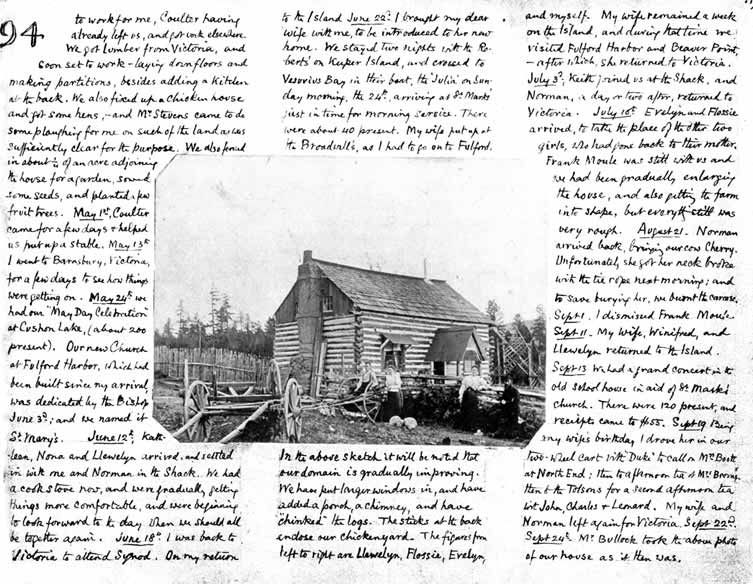 94
to work for me, Coulter having
already left us, and got work elsewhere.
We got lumber from Victoria, and
soon set to work – laying down floors and
making partitions, besides adding a Kitchen
at the back. We also fixed up a Chicken house
and got some hens, – and Mr Stevens came to do
some ploughing for me on such of the land as was
sufficiently clear for the purpose. We also fenced
in about of an acre adjoining
the house for a garden, sowed
some seeds, and planted a few
fruit trees. May 1st, Coulter
came for a few days & helped
us put up a stable. May 13th
I went to Barnsbury, Victoria,
for a few days to see how things
were getting on. May 24th we
had our "May Day Celebration"
at Cushon Lake, (about 200
present). Our new Church
at Fulford Harbor, which had
been built since my arrival,
was dedicated by the Bishop
June 3rd; and we named it
St Mary's. June 12th, Kath-
leen, Nona and Llewelyn arrived, and settled
in with me and Norman in the Shack. We had
a cook stove now, and were gradually getting
things more comfortable, and were beginning
to look forward to the day when we should all
be together again. June 18th I was back to
Victoria to attend Synod. On my return
to the Island June 22nd I brought my dear
wife with me, to be introduced to her new
home. We stayed two nights with the Ro-
berts' on Kuper Island, and crossed to
Vesuvius Bay in their boat, the 'Julia' on Sun-
day morning, the 24th, arriving at St Mark's
just in time for morning service. There
were about 40 present. My wife put up at
the Broadwell's, as I had to go on to Fulford.
In the above sketch it will be noted that
our domain is gradually improving.
We have put larger windows in, and have
added a porch, a chimney, and have
"chinked" the logs. The sticks at the back
enclose our chickenyard. The figures from
left to right are Llewelyn, Flossie, Evelyn,
and myself. My wife remained a week
on the Island, and during that time we
visited Fulford Harbor and Beaver Point,
– after which, she returned to Victoria.
July 3rd, Keith joined us at the Shack, and
Norman, a day or two after, returned to
Victoria. July 10th Evelyn and Flossie
arrived, to take the place of the other two
girls, who had gone back to their mother.
Frank Moule was still with us and
we had been gradually enlarging
the house, and also getting the farm
into shape, but everyth still was
very rough. August 21. Norman
arrived back, bringing our cow Cherry.
Unfortunately she got her neck broke
with the tie rope next morning; and
to save burying her, we burnt the carcase.
Sept 1. I dismissed Frank Moule
Sept 11. My Wife, Winifred, and
Llewelyn returned to the Island.
Sept 13 We had a grand Concert in the
old School house in aid of St Mark's
Church. There were 120 present, and
receipts came to $55. Sept 19 Being
my wife's birthday I drove her in our
two-wheel Cart with 'Duke' to call on Mrs
at North End; then to afternoon tea at Mrs
then to the Tolsons for a second afternoon tea
with John, Charles & Leonard. My wife and
Norman left again for Victoria Sept 22nd.
Sept 24th Mr Bullock took the above photo
of our house as it then was.